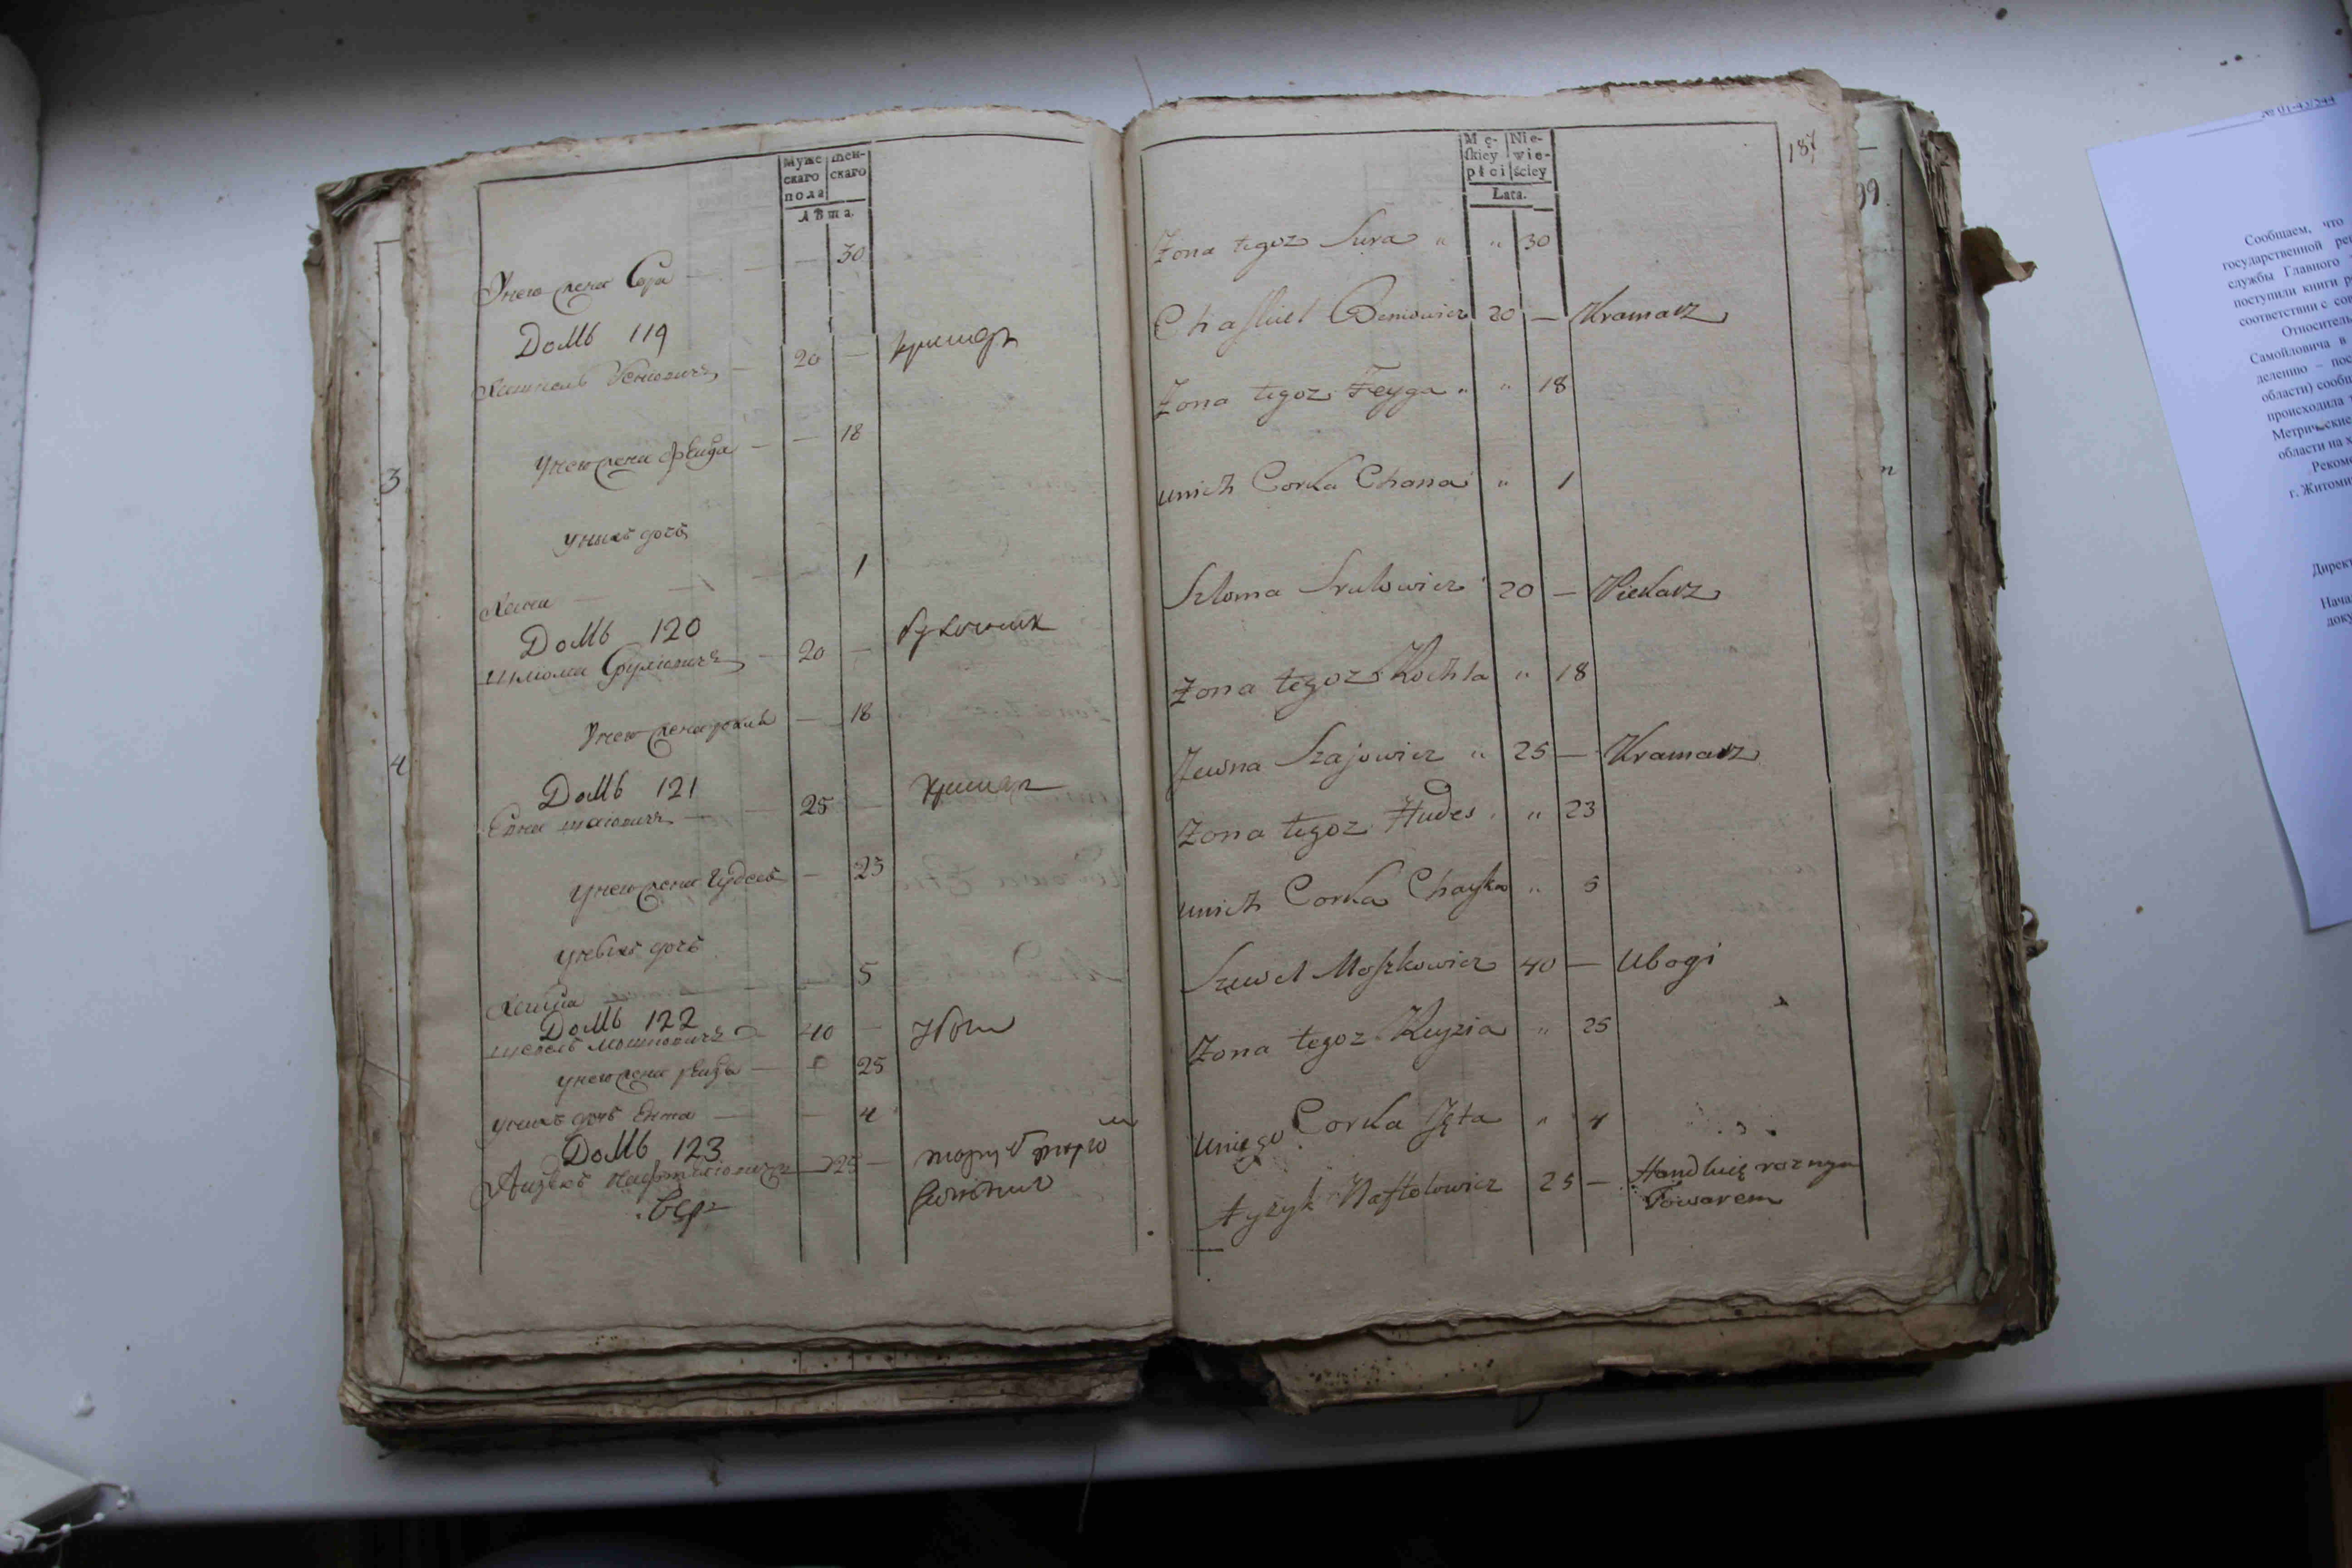 Муже
скаго
пола
жен-
скаго
Лѣта.
У него жена Сора 30
Домъ 119
20 — крамарь
У него жена Фейга — — 18
У нихъ дочь
Хана — 1
Домъ 120
Шлиома Срулиовичъ — 20 —
У него жена — 18
Домъ 121
Евна Шаиовичъ — 25 — крамар
У него жена Гудесъ — 23
У нихъ дочь
5
Домъ 122
Шевель Мошковичъ 40 —
У него жена — 25
У нихъ дочь Ента — — 4
Домъ 123
Айзыкъ 25 —
3
4
187
99.
Mę-
skiey
płci
Nie-
wie-
ściey
Lata.
Żona tegoż Sura " " 30
Chaskiel Beniowicz 20 — Kramarz
Żona tegoż Feyga " " 18
unich Corka Chana " 1
Szloma Srulowicz 20 — Piekarz
Żona tegoż Rochla " 18
Jewna Szajowicz " 25 — Kramarz
Żona tegoż Hudes " 23
unich Corka Chayka " 5
Szewel Moszkowicz 40 — Ubogi
Żona tegoż Reyzia " 25
uniego Corka Jęta " 4
Ayzyk Naftolowicz 25 — Handluię roznym
Towarem
№ 01-43/544
Сообщаем, что
государственной
службы Главного
поступили книги
соответствии с
Относитель
Самойловича в
делению – пос
области) сооб
происходила
Метрические
области на х
Рекоме
г. Житоми
Директ
Нача
доку